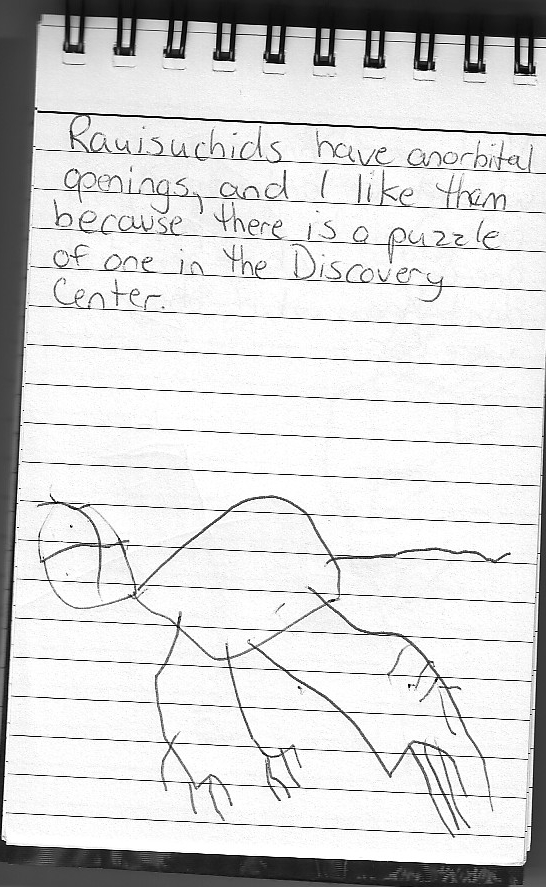 Rauisuchids have anorbital
openings, and I like them
because there is a puzzle
of one in the Discovery
Center.